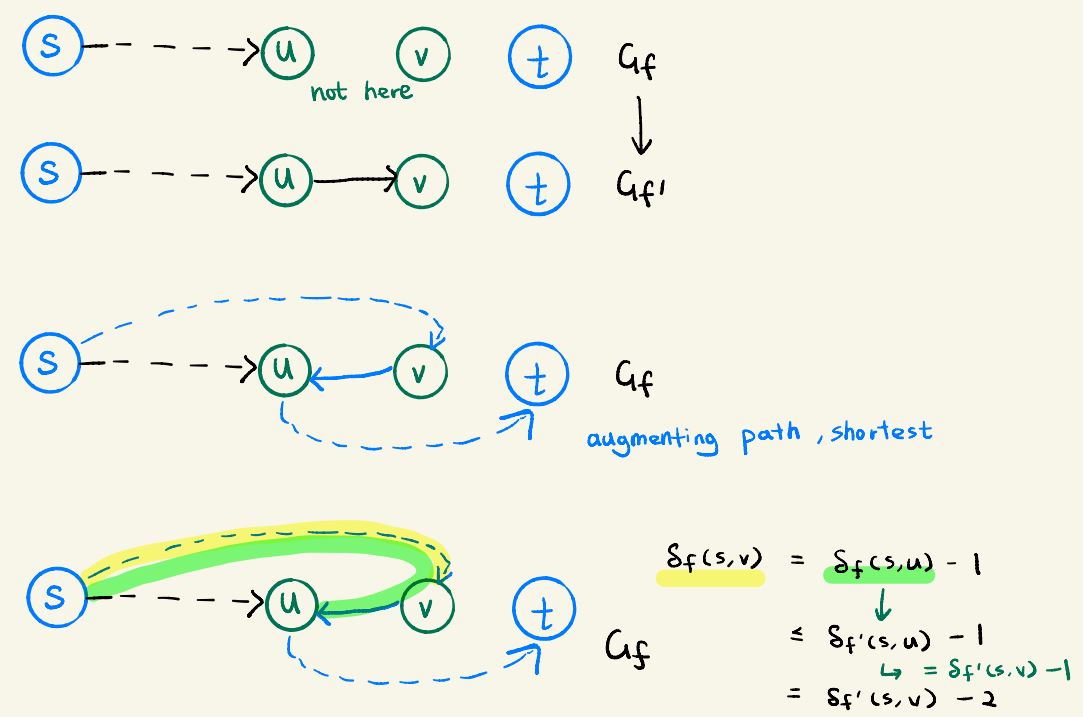 s u v t Gf
not here
s u v t Gf'
s u v t Gf
augmenting path, shortest
δf(s,v) = δf(s,u) - 1
s u v t Gf
≤ δf'(s,u) - 1
↳ = δf'(s,v) - 1
= δf'(s,v) - 2